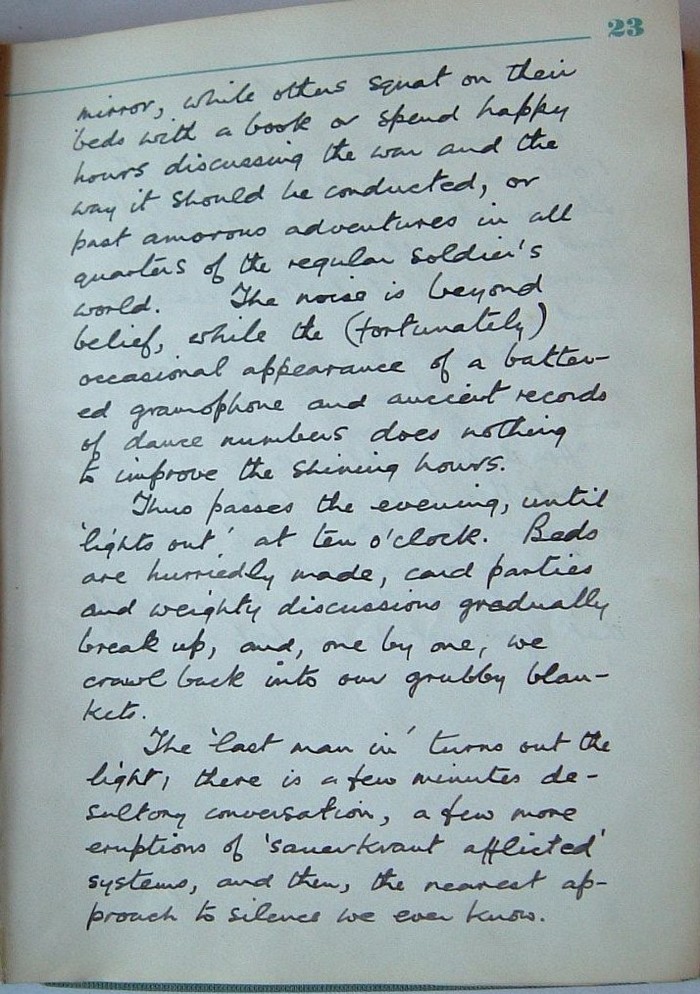 23
mirror, while others squat on their
beds with a book or spend happy
hours discussing the war and the
way it should be conducted, or
past amorous adventures in all
quarters of the regular soldier's
world. The noise is beyond
belief, while the (fortunately)
occasional appearance of a batter-
ed gramophone and ancient records
of dance numbers does nothing
to improve the shining hours.
Thus passes the evening, until
'lights out' at ten o'clock. Beds
are hurriedly made, card parties
and weighty discussions gradually
break up, and, one by one, we
crawl back into our grubby blan-
kets.
The 'last man in' turns out the
light, there is a few minutes de-
sultory conversation, a few more
eruptions of 'sauerkraut afflicted'
systems, and then, the nearest ap-
proach to silence we ever know.